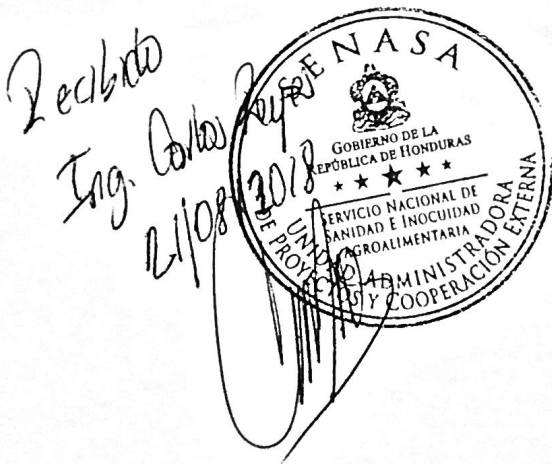 Recibido
Ing. Carlos Reyes
21/08/2018
SENASA
GOBIERNO DE LA
REPÚBLICA DE HONDURAS
SERVICIO NACIONAL DE
SANIDAD E INOCUIDAD
AGROALIMENTARIA
UNIDAD ADMINISTRADORA
DE PROYECTOS Y COOPERACIÓN EXTERNA